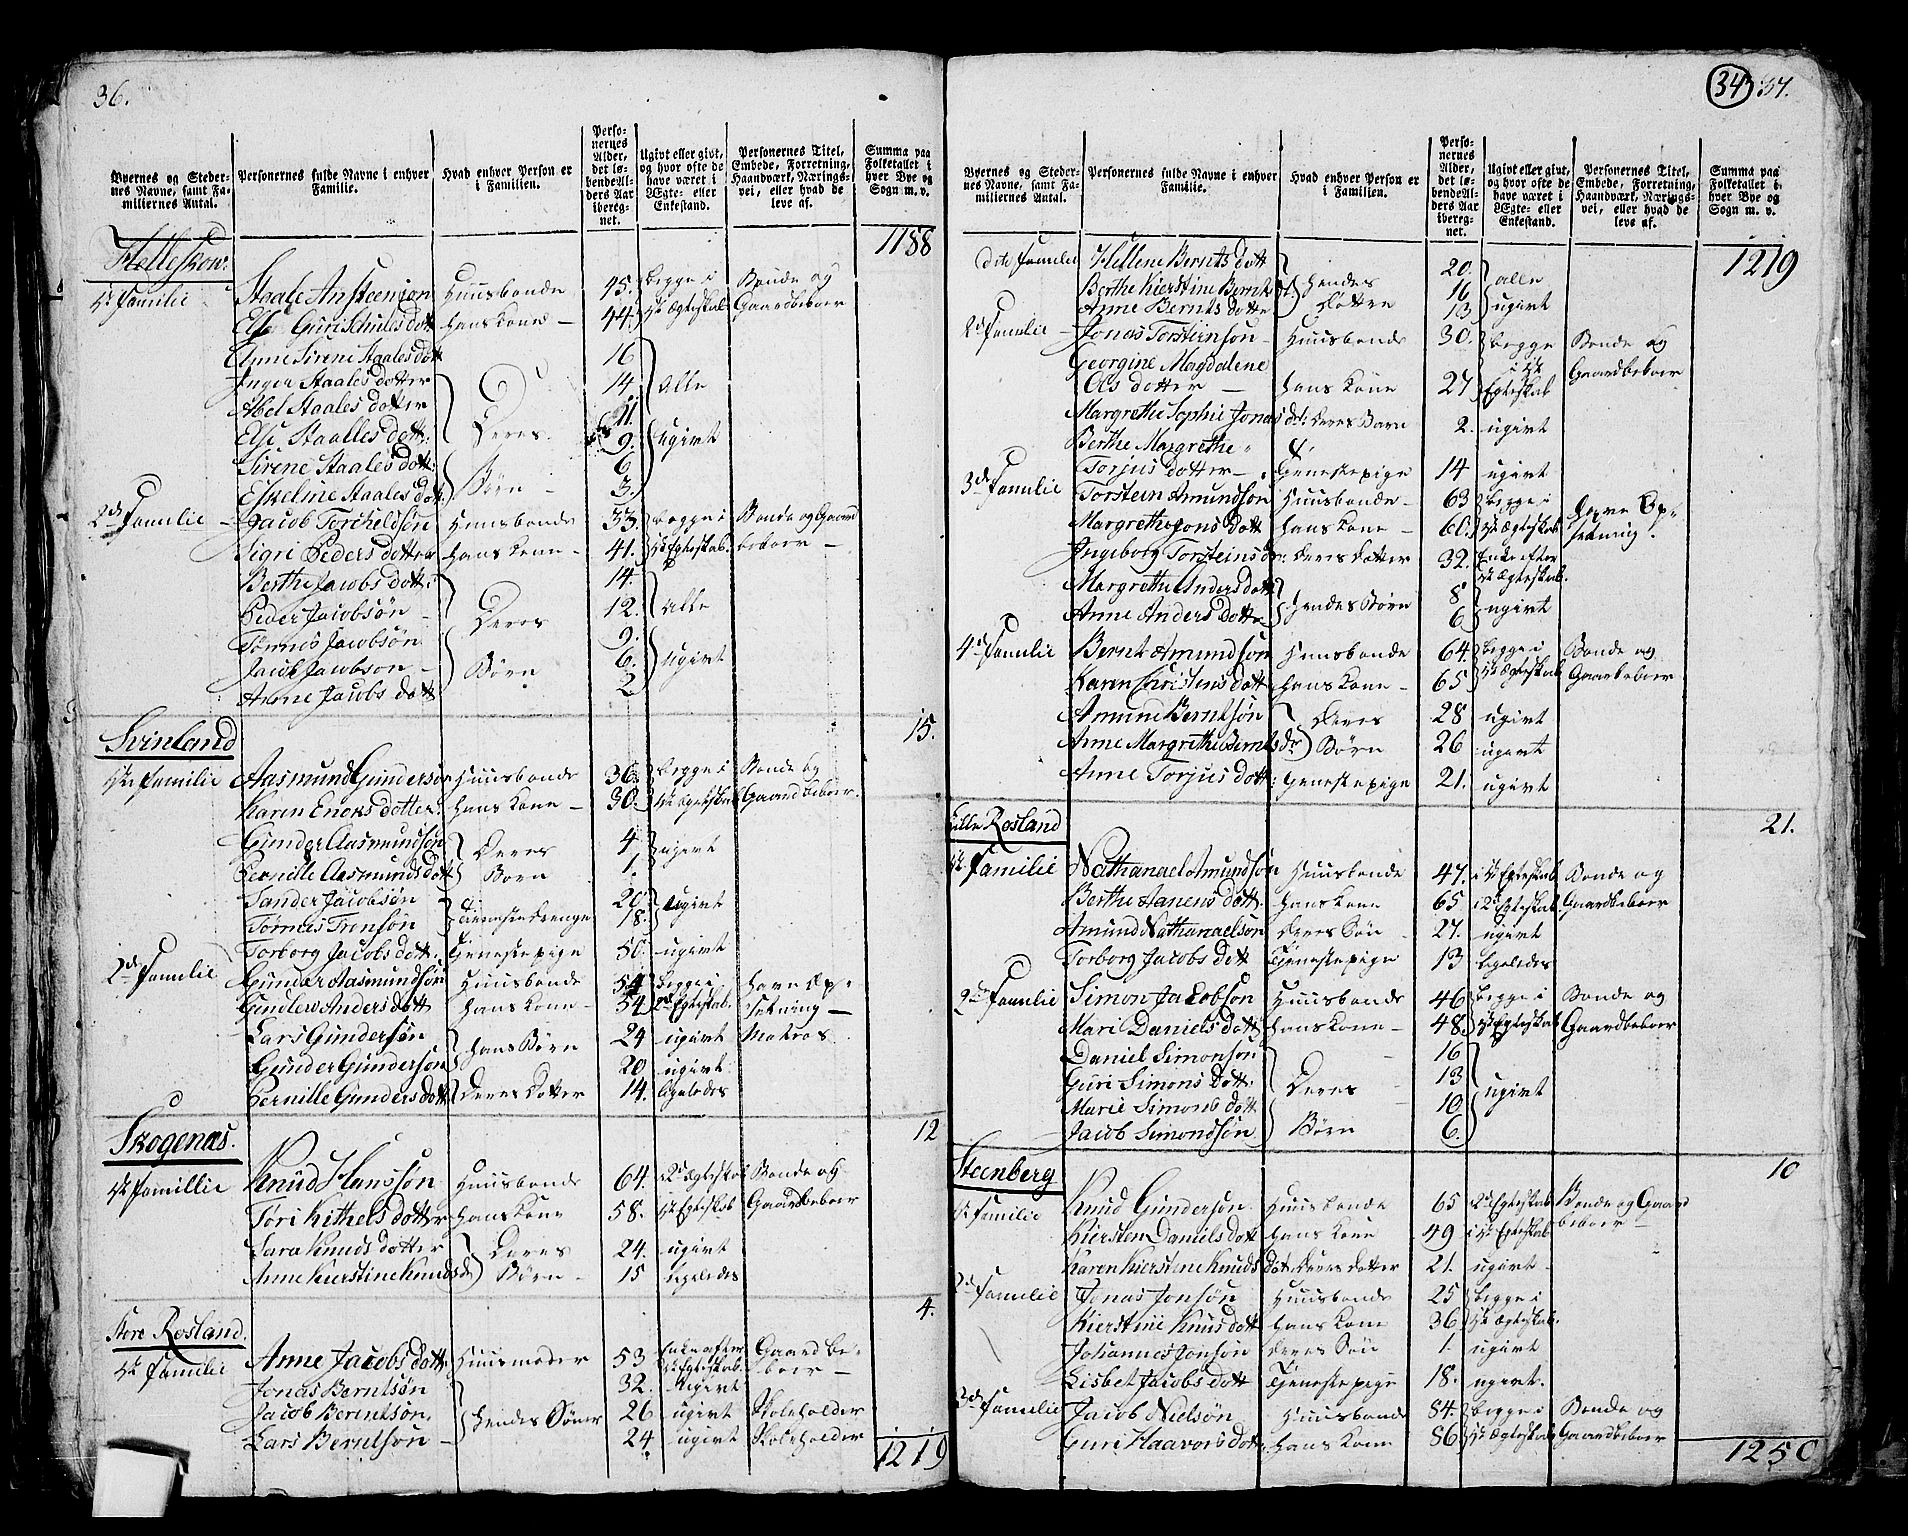 36.
Byernes og Stedernes Navne, samt Familiernes Antal.
Personernes fulde Navne i enhver Familie.
Hvad enhver Person er i Familien.
Personernes Alder, det løbende Alders Aar iberegnet.
Ugivt eller givt, og hvor ofte de have været i Ægte- eller Enkestand.
Personernes Titel, Embede, Forretning, Haandværk, Næringsvei, eller hvad de leve af.
Summa paa Folketallet i hver Bye og Sogn m. v.
Helleskow. 1188
1st Familie Staale Ansteenson Huusbonde 45. begge i Bonde og
Else Guri Schules dott hans Kone – 44. 1st Ægteskab Gaardbeboer
Anne Sirene Staales dott 16
Inger Staales dotter 14. alle
Abel Staales dotter 11.
Else Staalles dott: Deres 9. ugivt
Sirene Staales dott: 6
Eskeline Staales dott: Børn – 3.
2d Familie – Jacob Torckeldsøn Huusbonde 33. begge i Bonde og Gaard
Sigri Peders dotter hans Kone – 41. 1st Egteskab. beboer –
Berthe Jacobs dott: 14.
Peder Jacobsøn – Deres 12. Alle
Tønnes Jacobsøn 9.
Jacob Jacobson – Børn 6. ugivt
Anne Jacobs dott 2
Svinland 15.
1ste Familie Aasmund Gunderson Huusbonde 36. begge i Bonde og
Karen Enoks dotter. hans Kone – 30. 1st Egteskab Gaardbeboer.
Gunder Aasmundsøn Deres 4 ugivt
Pernille Aasmunds dott Børn 1.
Sander Jacobsøn 20 ugivt
Tørnes Trensøn Tienestedrenge 18.
Torborg Jacobs dott. Tjenestepige 50. ugivt
2d Familie Gunder Aasmundsøn Huusbonde 54 begge i havr Op-
Gundlew Anders dott hans Kone – 54 2d Egteskab. setning –
Lars Gundersøn hans Børn 24 ugivt Matros
Gunder Gunderson 20 ugivt
Pernille Gunders dott Deres dotter 14. ligeledes
Skogenæs. 12
1st Famillie Knud Hanssøn Huusbonde 64. i 2d Ægteskab Bonde og
Tøri Kithels dotter hans Kone 58. 1st Egteskab Gaardbeboer
Sara Knuds dotter Deres 24. ugivt
Anne Kierstine Knuds d Børn – 15 ligeledes
Store Rosland. 4.
1st Familie Anne Jacobs dott: Huusmoder 53 Enke efter Gaard be-
Jonas Berntsøn 32. 1st Egteskab. ugivt boer –
Jacob Berentsøn. hendes Sønner 26 ugivt Skoleholder
Lars Berntsøn – 24. ugivt Skoleholder
1219
34 37.
Byernes og Stedernes Navne, samt Familiernes Antal.
Personernes fulde Navne i enhver Familie.
Hvad enhver Person er i Familien.
Personernes Alder, det løbende Alders Aar iberegnet.
Ugivt eller givt, og hvor ofte de have været i Ægte- eller Enkestand.
Personernes Titel, Embede, Forretning, Haandværk, Næringsvei, eller hvad de leve af.
Summa paa Folketallet i hver Bye og Sogn m. v.
dito Familie Hellene Bernts dott 20. alle 1219
Berthe Kierstine Bernts dt. hendes 16
Anne Bernts dotter Døttre 13 ugivt
2d Familie – Jonas Torstensøn – Huusbonde 30. begge Bonde og
Georgine Magdalene i 1st Gaardbeboer
Ols dotter – hans Kone 27 Egteskab
Margrethe Sophie Jonas dt: Deres Barn 2. ugivt
Berthe Margrethe
Torjus dotter – Tjenestepige 14 ugivt
3d Familie Torstein Amundsøn Huusbonde – 63 begge i havr Op-
Margrethe Jons dott hans Kone – 60. 1st Ægteskab setning.
Ingeborg Torsteins dr: Deres dotter 32. Enke efter
1st Ægteskab.
Margrethe Anders dott 8
Anne Anders dotter hendes Børn 6 ugivt
4d Familie Bernt Amundsøn Huusbonde 64. begge i Bonde og
Karen Christens dott hans Kone – 65 1st Ægteskab Gaardbeboer
Amund Berntsøn Deres 28 ugivt
Anne Margrethe Bernts dr Børn 26 ugivt
Anne Torjus dott: Tjenestepige 21. ugivt
Lille Rosland 21.
1st Familie Nathanael Amundsøn Huusbonde 47. i 1st Egteskab Bonde og
Berthe Hanens dott. hans Kone 65 i 2d Egteskab Gaardbeboer
Amund Nathanaelsøn Deres Søn 27. ugivt
Torborg Jacobs dott Tjenestepige 13 ligeledes
2den Familie Simon Jacobson Huusbonde 46 begge i Bonde og
Mari Daniels dott hans Kone – 48. 1st Egteskab Gaardbeboer
Daniel Simonsøn 16
Guri Simons dott. Deres – 13 ugivt
Marie Simons dott 10
Jacob Simondsøn Børn 6.
Steenberg 10
1st Familie Knud Gundersøn Huusbonde 65 i 2d Egteskab Bonde og Gaard
Kiersten Daniels dott hans Kone 49 i 1st Egteskab beboer –
Karen Kierstine Knuds dott: Deres dotter 21. ugivt
2d Familie Jonas Jonsøn Huusbonde 25 begge i
Kierstine Knus dott hans Kone 36 1st Ægteskab.
Johannes Jonsøn Deres Søn 1. ugivt
Lisbet Jacobs dott Tjenestepige 18. ugivt.
3d Familie Jacob Nielsøn Huusbonde 84. begge i Bonde og
Guri Haavors dott: hans Kone 86 1st Ægteskab Gaardbeboer
1250